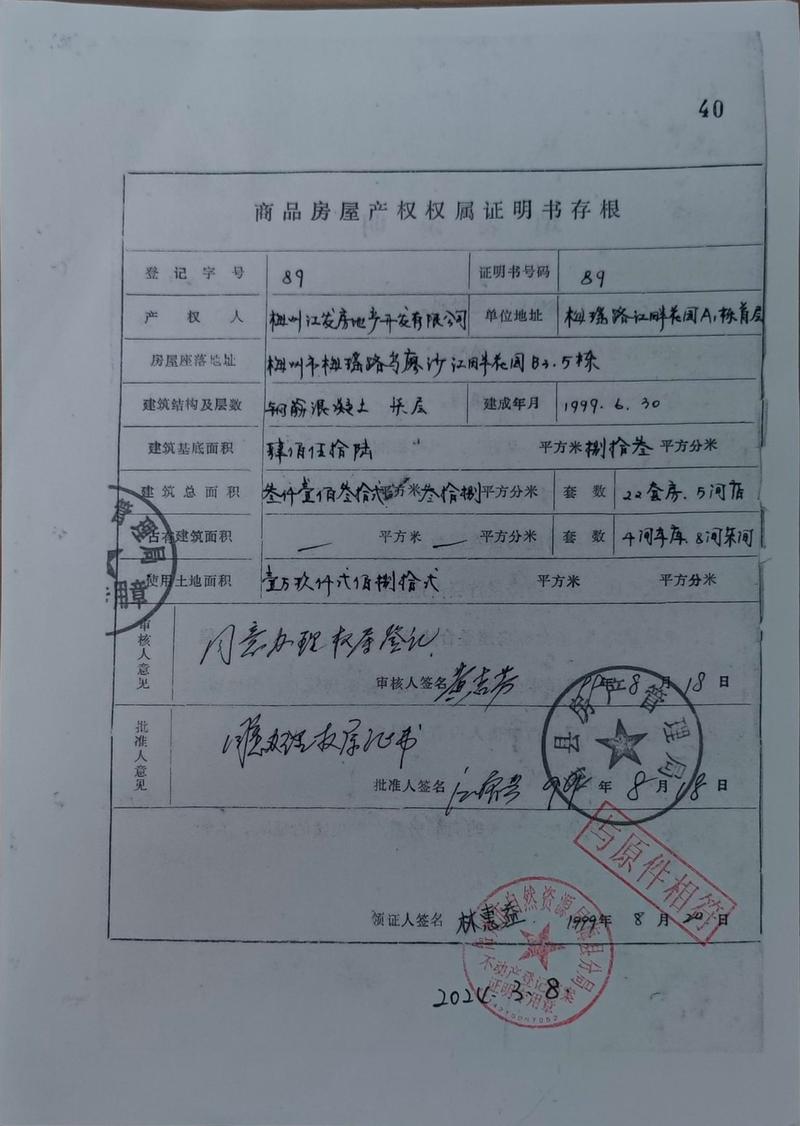 40
商品房屋产权权属证明书存根
登记字号 89 证明书号码 89
产权人 梅州江发房地产开发有限公司 单位地址 梅瑶路江畔花园A1栋首层
房屋座落地址 梅州市梅瑶路乌廖沙江畔花园B3.5栋
建筑结构及层数 钢筋混凝土 层 建成年月 1999.6.30
建筑基底面积 肆佰伍拾陆 平方米 捌拾叁 平方分米
建筑总面积 叁仟壹佰叁拾弍 平方米 叁拾捌 平方分米 套数 22套房、5间店
占有建筑面积 — 平方米 — 平方分米 套数 4间车库、8间杂间
使用土地面积 壹万玖仟弍佰捌拾弍 平方米 平方分米
管理局
用章
审核人意见
同意办理权属登记
审核人签名 黄志芳 年8月18日
县房产管理局
批准人意见
同意办理权属证书
批准人签名 年8月18日
与原件相符
领证人签名 林惠益 1999年8月20日
自然资源局梅县分局
不动产登记档案
证明专用章
2024.3.8.